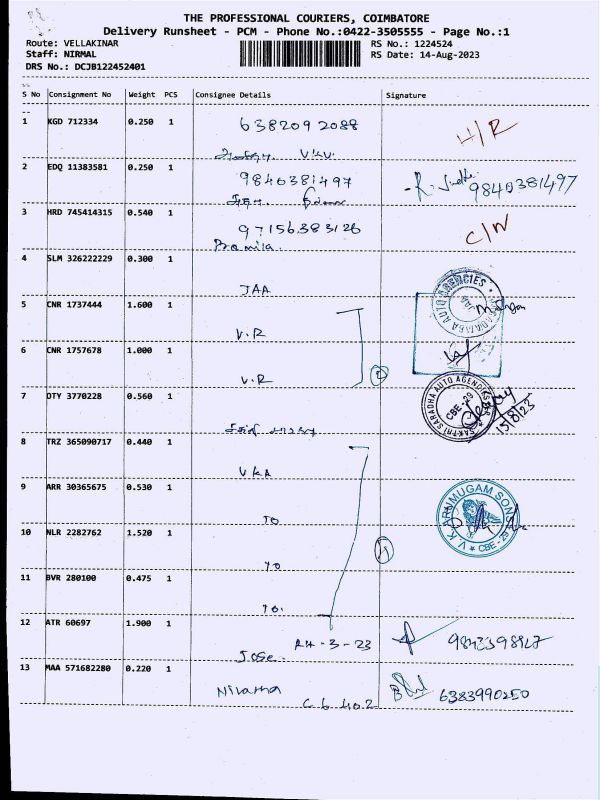 THE PROFESSIONAL COURIERS, COIMBATORE
Delivery Runsheet - PCM - Phone No.:0422-3505555 - Page No.:1
Route: VELLAKINAR
RS No.: 1224524
Staff: NIRMAL
RS Date: 14-Aug-2023
DRS No.: DCJB122452401
S No Consignment No Weight PCS Consignee Details Signature
1 KGD 712334 0.250 1 6382092088 H/R
V.K.V.
2 EDQ 11383581 0.250 1 9840381497 9840381497
3 HRD 745414315 0.540 1 97156383126 C/N
Pramila.
4 SLM 326222229 0.300 1
JAA
AUTO AGENCIES
5 CNR 1737444 1.600 1
V.R
6 CNR 1757678 1.000 1
V.R
7 DTY 3770228 0.560 1
SAKTHI SARADHA AUTO AGENCIES
CBE-29
15/8/23
8 TRZ 365090717 0.440 1
VKA
9 ARR 30365675 0.530 1
TO
V.K. ARUMUGAM SONS
CBE - 29
10 NLR 2282762 1.520 1
TO
11 BVR 280100 0.475 1
TO.
12 ATR 60697 1.900 1 24-3-23 9843398827
Jose.
13 MAA 571682280 0.220 1 Niranna 6383990250
C6 402